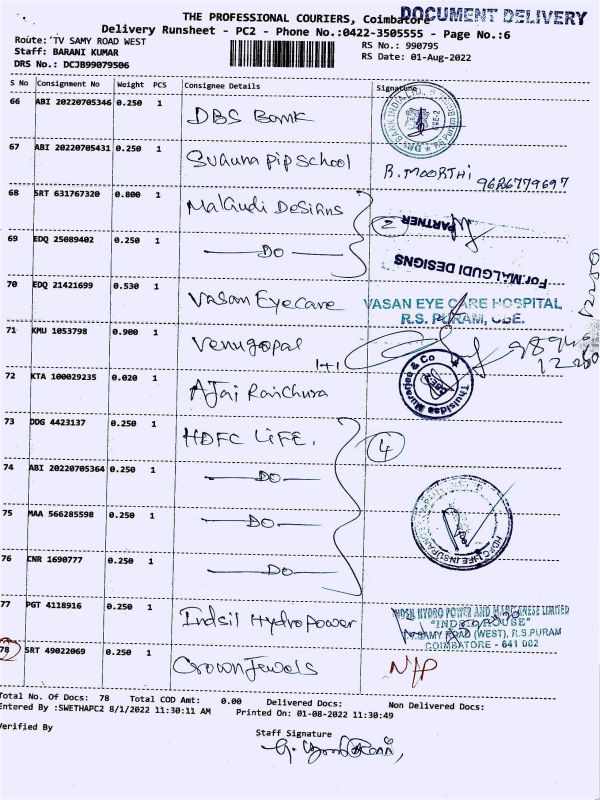 THE PROFESSIONAL COURIERS, Coimbatore DOCUMENT DELIVERY
Delivery Runsheet - PC2 - Phone No.:0422-3505555 - Page No.:6
Route: TV SAMY ROAD WEST
RS No.: 990795
Staff: BARANI KUMAR
RS Date: 01-Aug-2022
DRS No.: DCJB99079506
S No Consignment No Weight PCS Consignee Details Signature
66 ABI 20220705346 0.250 1 DBS Bank
67 ABI 20220705431 0.250 1 School R. MOORTHI 9626779697
68 SRT 631767320 0.800 1 Malgudi Designs 2 PARTNER
69 EDQ 25089402 0.250 1 —DO— For MALGUDI DESIGNS
70 EDQ 21421699 0.530 1 Vasan Eye Care VASAN EYE CARE HOSPITAL
R.S. PURAM, CBE.
71 KMU 1053798 0.900 1 Venugopal 1+1
72 KTA 100029235 0.020 1 Ajai Raichura Thulsidas Murarjee & Co
73 DDG 4423137 0.250 1 HDFC LIFE. 4
74 ABI 20220705364 0.250 1 —DO—
75 MAA 566285598 0.250 1 —DO— HDFC LIFE INSURANCE
76 CNR 1690777 0.250 1 —DO—
77 PGT 4118916 0.250 1 Indsil Hydro Power INDSIL HYDRO POWER AND MANGANESE LIMITED
"INDSIL HOUSE"
T.V.SAMY ROAD (WEST), R.S.PURAM
COIMBATORE - 641 002
78 SRT 49022069 0.250 1 Crown Jewels N/P
Total No. Of Docs: 78 Total COD Amt: 0.00 Delivered Docs: Non Delivered Docs:
Entered By :SWETHAPC2 8/1/2022 11:30:11 AM Printed On: 01-08-2022 11:30:49
Verified By Staff Signature